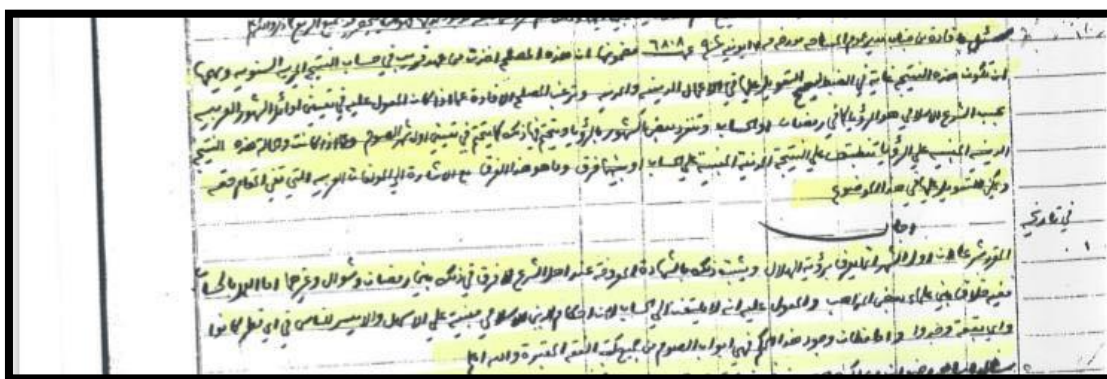 سئل بافادة من جناب مدير عموم المساحة مورخه ١٧ يونيه سنة ٩٠٤ نمرة ٦٨٠٨ مضمونها ان هذه المصلحة اخذت من عهد قريب في حساب النتيجة العربية السنوية ويهمها
ان تكون هذه النتيجة غاية في الضبط ليصح التعويل عليها في الاعمال الدينية والمدنية وترغب المصلحة الافادة عما اذا كان المعول عليه في تعيين اوائل الشهور العربية
بحسب الشرع الاسلامي هو الرؤيا كما في رمضان او الحساب وتنفرد بعض الشهور بالرؤيا ويتحتم في ذلك كما يتحتم في تعيين اول شهر الصوم وعما اذا كانت والحالة هذه النتيجة
الدينية المبنية على الرؤيا تنطبق على النتيجة المدنية المبنية على الحساب او بينهما فرق وما هو هذا الفرق مع الاشارة الى المؤلفات العربية التي تفي المقام حقه
ويمكن التعويل عليها في هذا الموضوع
في تاريخه
اجاب
المقرر شرعا ان اول الشهر انما يعرف برؤية الهلال ويثبت ذلك بالشهادة المعروفة عند اهل الشرع لا فرق في ذلك بين رمضان وشوال وغيرهما اما العمل بالحساب
ففيه خلاف بين علماء بعض المذاهب والمعول عليه انه لا يلتفت الى الحساب لان احكام الدين الاسلامي مبنية على الاسهل والايسر للناس في اي قطر كانوا
واي بقعة وجدوا واما مظان وجود هذا الحكم فهي ابواب الصوم من جميع كتب الفقه المعتبرة والله اعلم